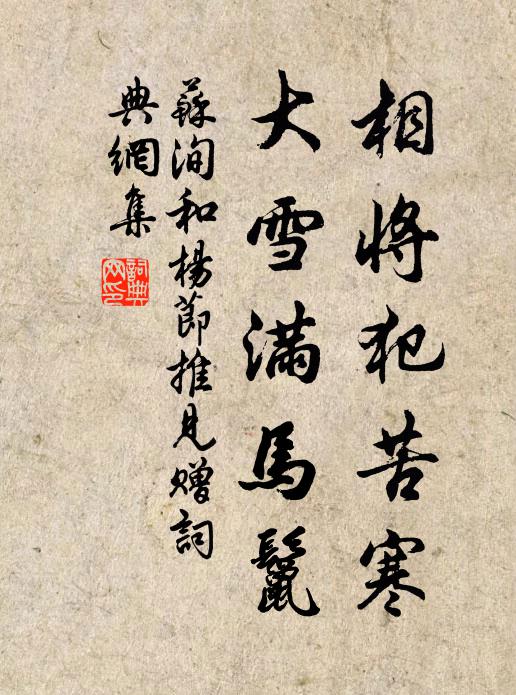 相將犯苦寒
大雪滿馬鬣
蘇洵和楊節推見贈詞
典網集
詞典網印